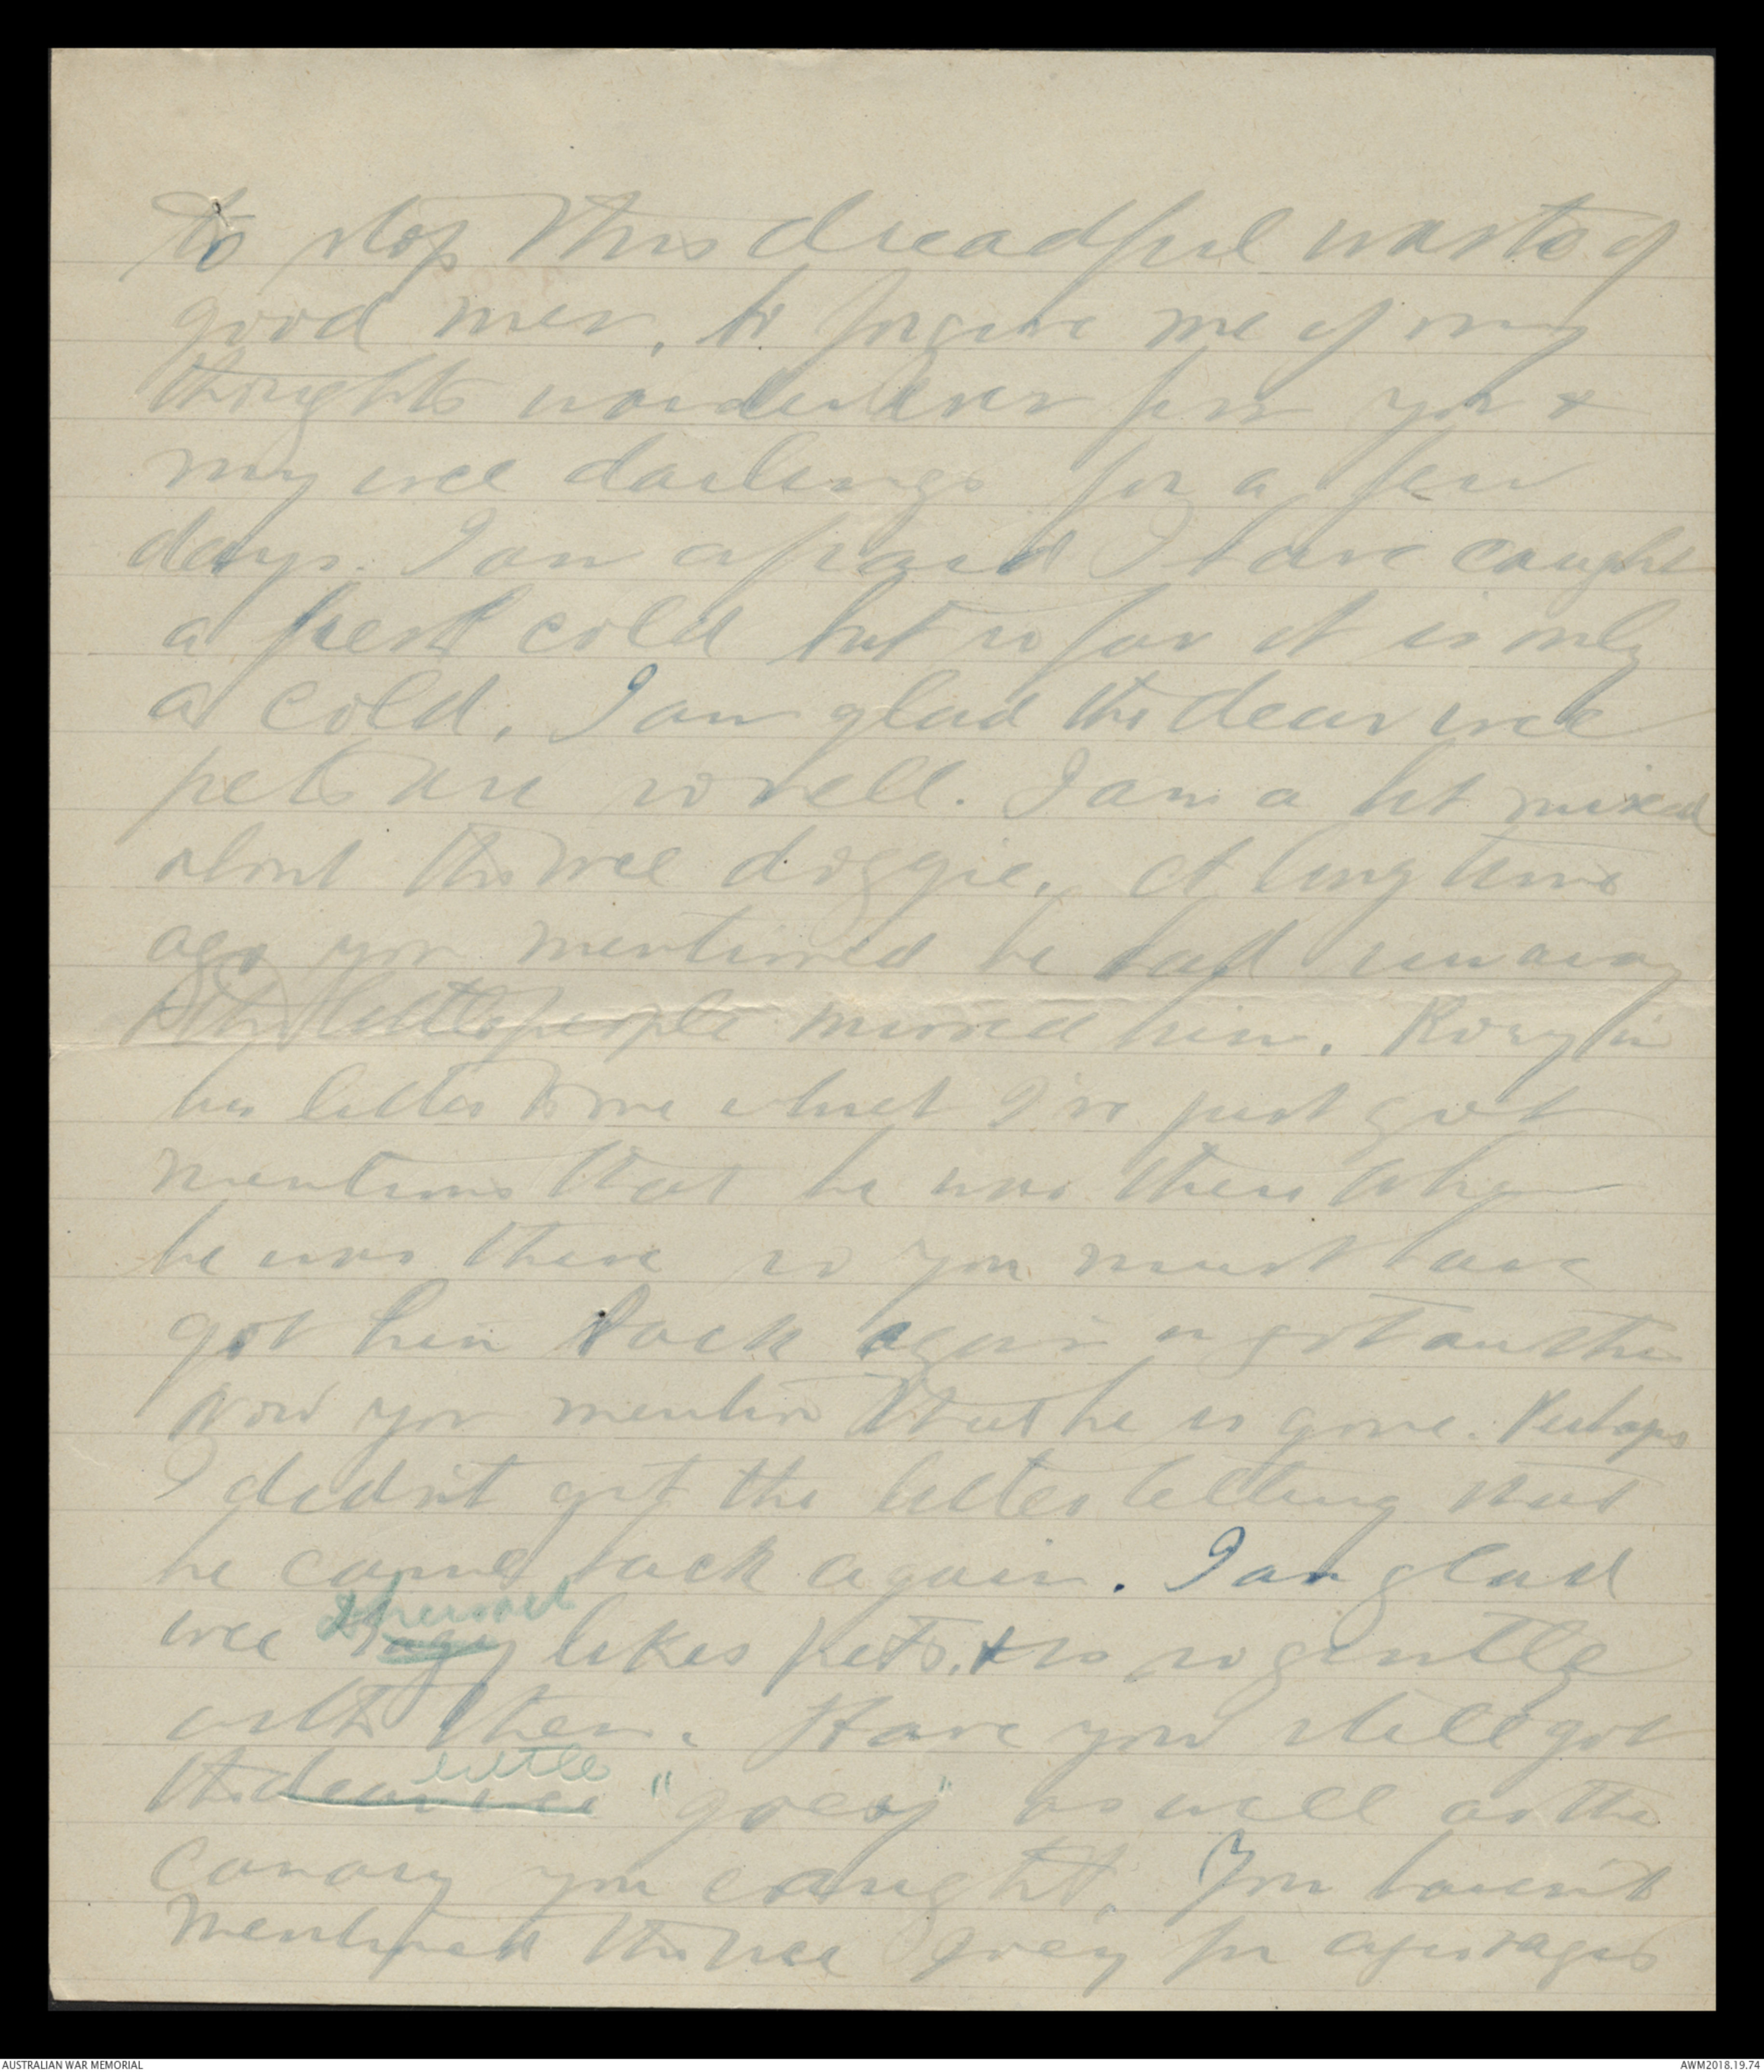 to stop this dreadful waste of
good men, to forgive me if my
thoughts wander ever from you &
my wee darlings for a few
days. I am afraid I have caught
a fresh cold but so far it is only
a cold. I am glad the dear wee
pets are so well. I am a bit mixed
about the wee doggie. A long time
ago you mentioned he had run away
& the little people missed him. Rory in
his letter to me which I've just got
mentions that he was there when
he was there so you must have
got him back again or got another
now you mention that he is gone. Perhaps
I didn't get the letter telling that
he came back again. I am glad
wee likes pets, & is so gentle
with them. Have you still got
little
the dear wee "goey" as well as the
canary you caught. You haven't
mentioned the wee goey for ages & ages
AUSTRALIAN WAR MEMORIAL
AWM2018.19.74